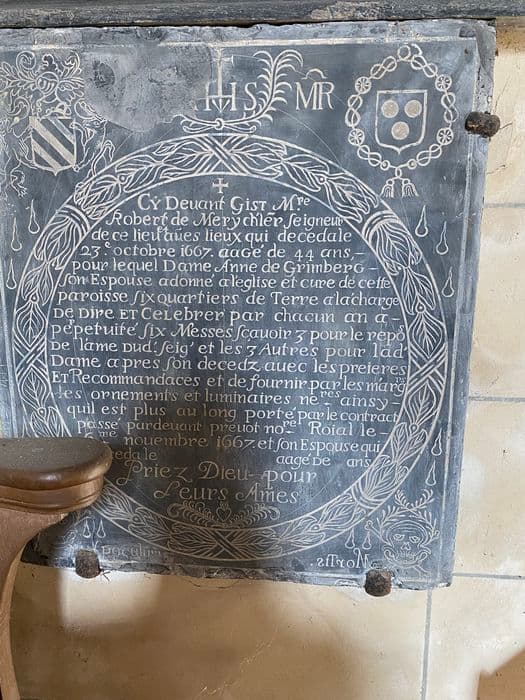 IHS MR
✝
Cy Devant Gist Mre
Robert de Merychler seigneur
de ce lieu et aues lieux qui decedale
23.e octobre 1667. aagé de 44 ans,
pour lequel Dame Anne de Grimberg
son Espouse a donne a leglise et cure de cette
paroisse six quartiers de Terre a la charge
De Dire et Celebrer par chacun an a
perpetuité six Messes scavoir 3 pour le repos
De lame dud. seig.r et les 3 Autres pour lad.
Dame apres son decedz avec les prieres
et Recommandaces et de fournir par les marg.rs
les ornements et luminaires ne.res ainsy
quil est plus au long porté par le contract
passé pardevant prevot no.re Roial le
novembre 1667. et son Espouse qui
deceda le aagée De ans
Priez Dieu pour
Leurs Ames
Poculum
Mortis.